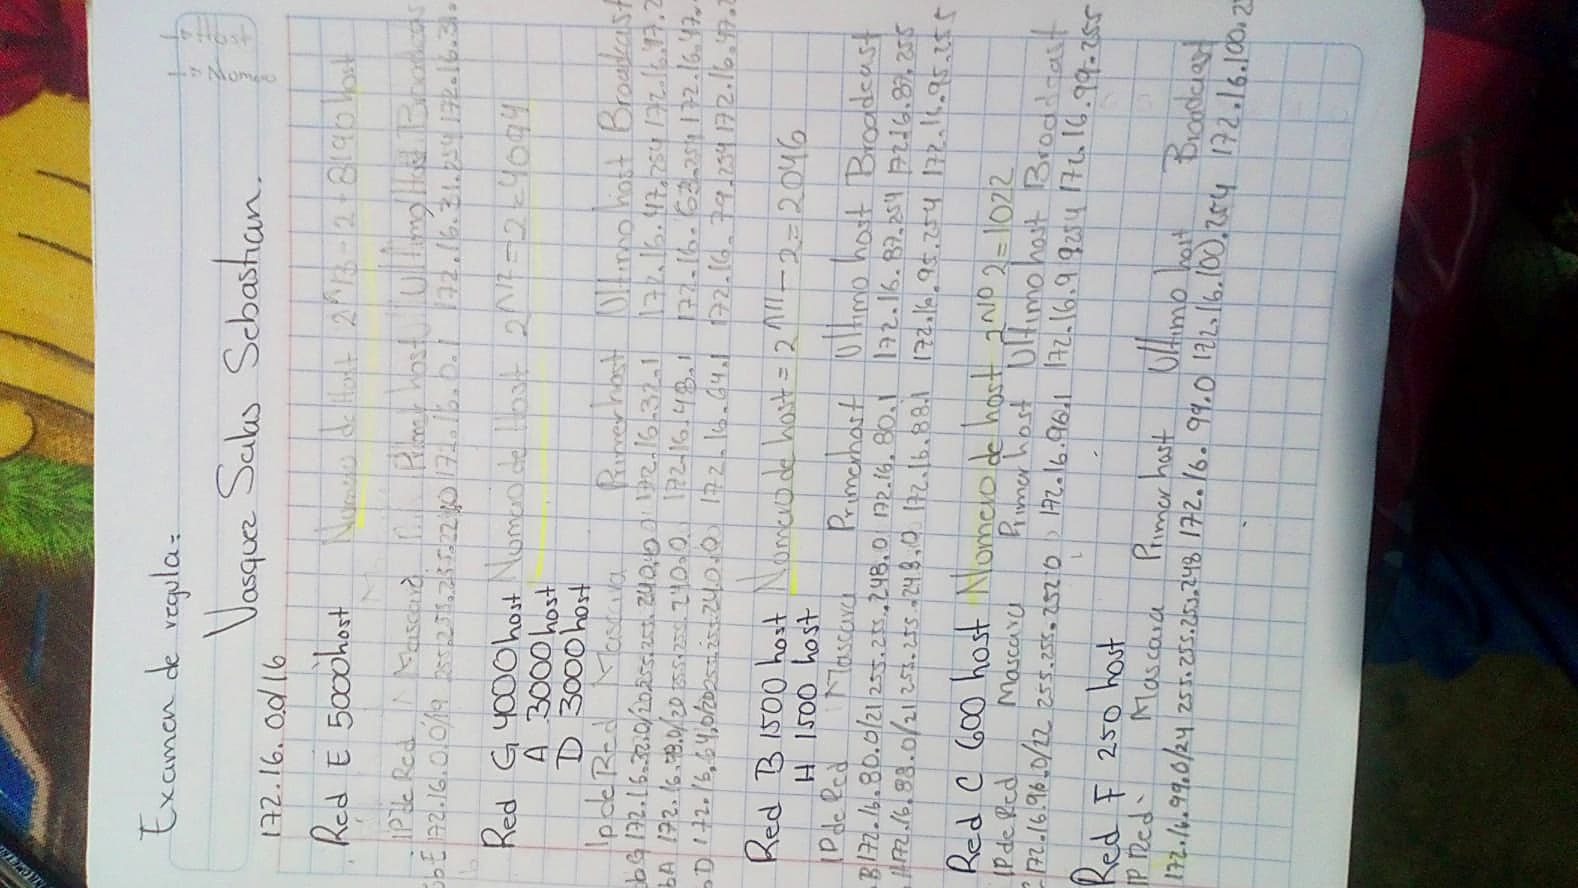 Examen de regula:
Vasquez Salas Sebastian.
172.16.0.0/16
Red E 5000host Numero de Host 2^13-2=8190host
IP de Red Mascara Primer host Ultimo Host Broadcas
b.E 172.16.0.0/19 255.255.224.0 172.16.0.1 172.16.31.254 172.16.31.
Red G 4000host Numero de Host 2^12-2=4094
A 3000host
D 3000host
Ip de Red Mascara Primer host Ultimo host Broadcast
b.G 172.16.32.0/20 255.255.240.0 172.16.32.1 172.16.47.254 172.16.47.2
bA 172.16.48.0/20 255.255.240.0 172.16.48.1 172.16.63.254 172.16.47.
bD 172.16.64.0/20 255.255.240.0 172.16.64.1 172.16.79.254 172.16.47.2
Red B 1500 host Numero de host = 2^11-2=2046
H 1500 host
IP de Red Mascara Primer host Ultimo host Broadcast
B 172.16.80.0/21 255.255.248.0 172.16.80.1 172.16.87.254 172.16.87.255
H 172.16.88.0/21 255.255.248.0 172.16.88.1 172.16.95.254 172.16.95.255
Red C 600 host Numero de host 2^10 2=1022
IP de Red Mascara Primer host Ultimo host Broadcast
172.16.96.0/22 255.255.252.0 172.16.96.1 172.16.99254 172.16.99.255
Red F 250 host
IP Red Mascara Primer host Ultimo host Broadcast
172.16.99.0/24 255.255.255.248 172.16.99.0 172.16.100.254 172.16.100.2